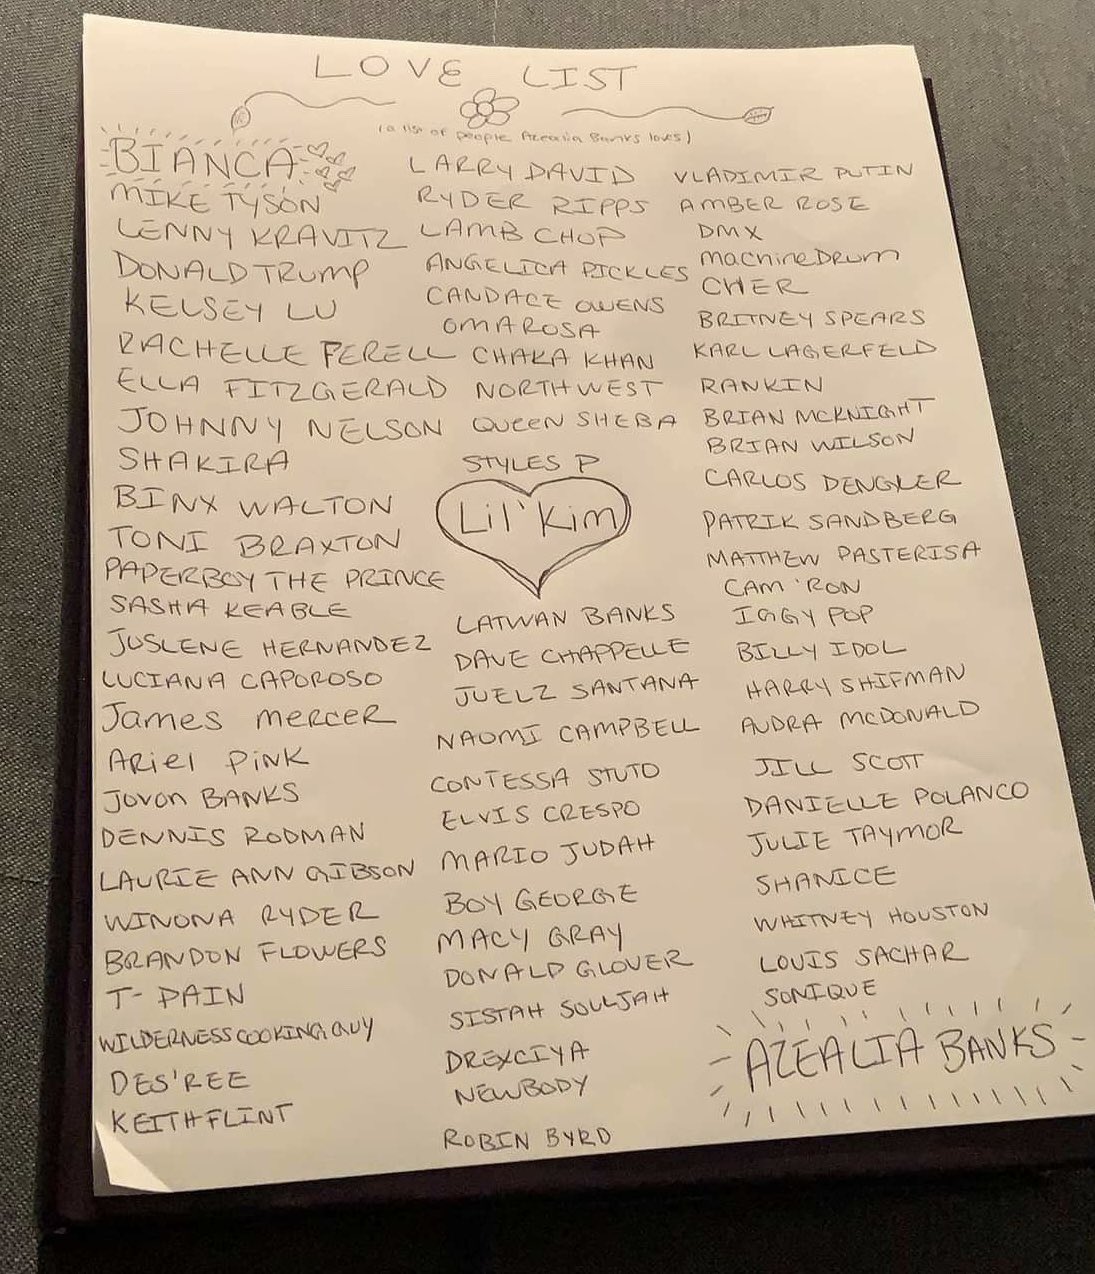 LOVE LIST
(a list of people Azealia Banks loves)
BIANCA
MIKE TYSON
LENNY KRAVITZ
DONALD TRUMP
KELSEY LU
RACHELLE FERELL
ELLA FITZGERALD
JOHNNY NELSON
SHAKIRA
BINX WALTON
TONI BRAXTON
PAPERBOY THE PRINCE
SASHA KEABLE
JUSLENE HERNANDEZ
LUCIANA CAPOROSO
James mercer
Ariel Pink
Jovon BANKS
DENNIS RODMAN
LAURIE ANN GIBSON
WINONA RYDER
BRANDON FLOWERS
T-PAIN
WILDERNESSCOOKINGGUY
DES'REE
KEITH FLINT
LARRY DAVID
RYDER RIPPS
LAMB CHOP
ANGELICA PICKLES
CANDACE OWENS
OMAROSA
CHAKA KHAN
NORTHWEST
QUEEN SHEBA
STYLES P
Lil' Kim
LATWAN BANKS
DAVE CHAPPELLE
JUELZ SANTANA
NAOMI CAMPBELL
CONTESSA STUTO
ELVIS CRESPO
MARIO JUDAH
BOY GEORGE
MACY GRAY
DONALD GLOVER
SISTAH SOULJAH
DREXCIYA
NEWBODY
ROBIN BYRD
VLADIMIR PUTIN
AMBER ROSE
DMX
machineDrum
CHER
BRITNEY SPEARS
KARL LAGERFELD
RANKIN
BRIAN MCKNIGHT
BRIAN WILSON
CARLOS DENGLER
PATRIK SANDBERG
MATTHEW PASTERISA
CAM'RON
IGGY POP
BILLY IDOL
HARRY SHIFMAN
AUDRA MCDONALD
JILL SCOTT
DANIELLE POLANCO
JULIE TAYMOR
SHANICE
WHITNEY HOUSTON
LOUIS SACHAR
SONIQUE
AZEALIA BANKS